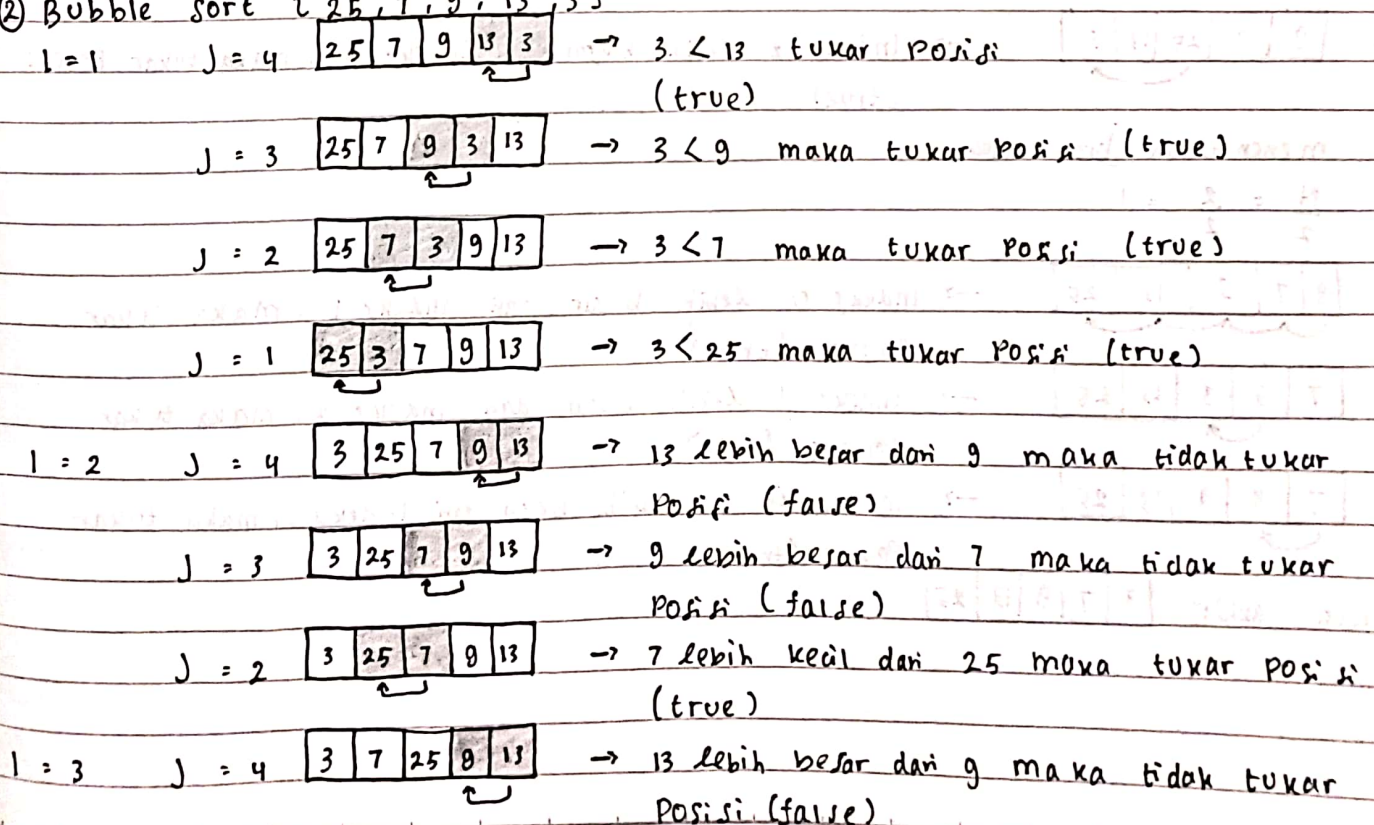 ② Bubble sort { 25, 7, 9, 13, 3 }
I = 1 J = 4 25 7 9 13 3 → 3 < 13 tukar posisi
(true)
J = 3 25 7 9 3 13 → 3 < 9 maka tukar posisi (true)
J = 2 25 7 3 9 13 → 3 < 7 maka tukar posisi (true)
J = 1 25 3 7 9 13 → 3 < 25 maka tukar posisi (true)
I = 2 J = 4 3 25 7 9 13 → 13 lebih besar dari 9 maka tidak tukar
posisi (false)
J = 3 3 25 7 9 13 → 9 lebih besar dari 7 maka tidak tukar
posisi (false)
J = 2 3 25 7 9 13 → 7 lebih kecil dari 25 maka tukar posisi
(true)
I = 3 J = 4 3 7 25 9 13 → 13 lebih besar dari 9 maka tidak tukar
posisi (false)